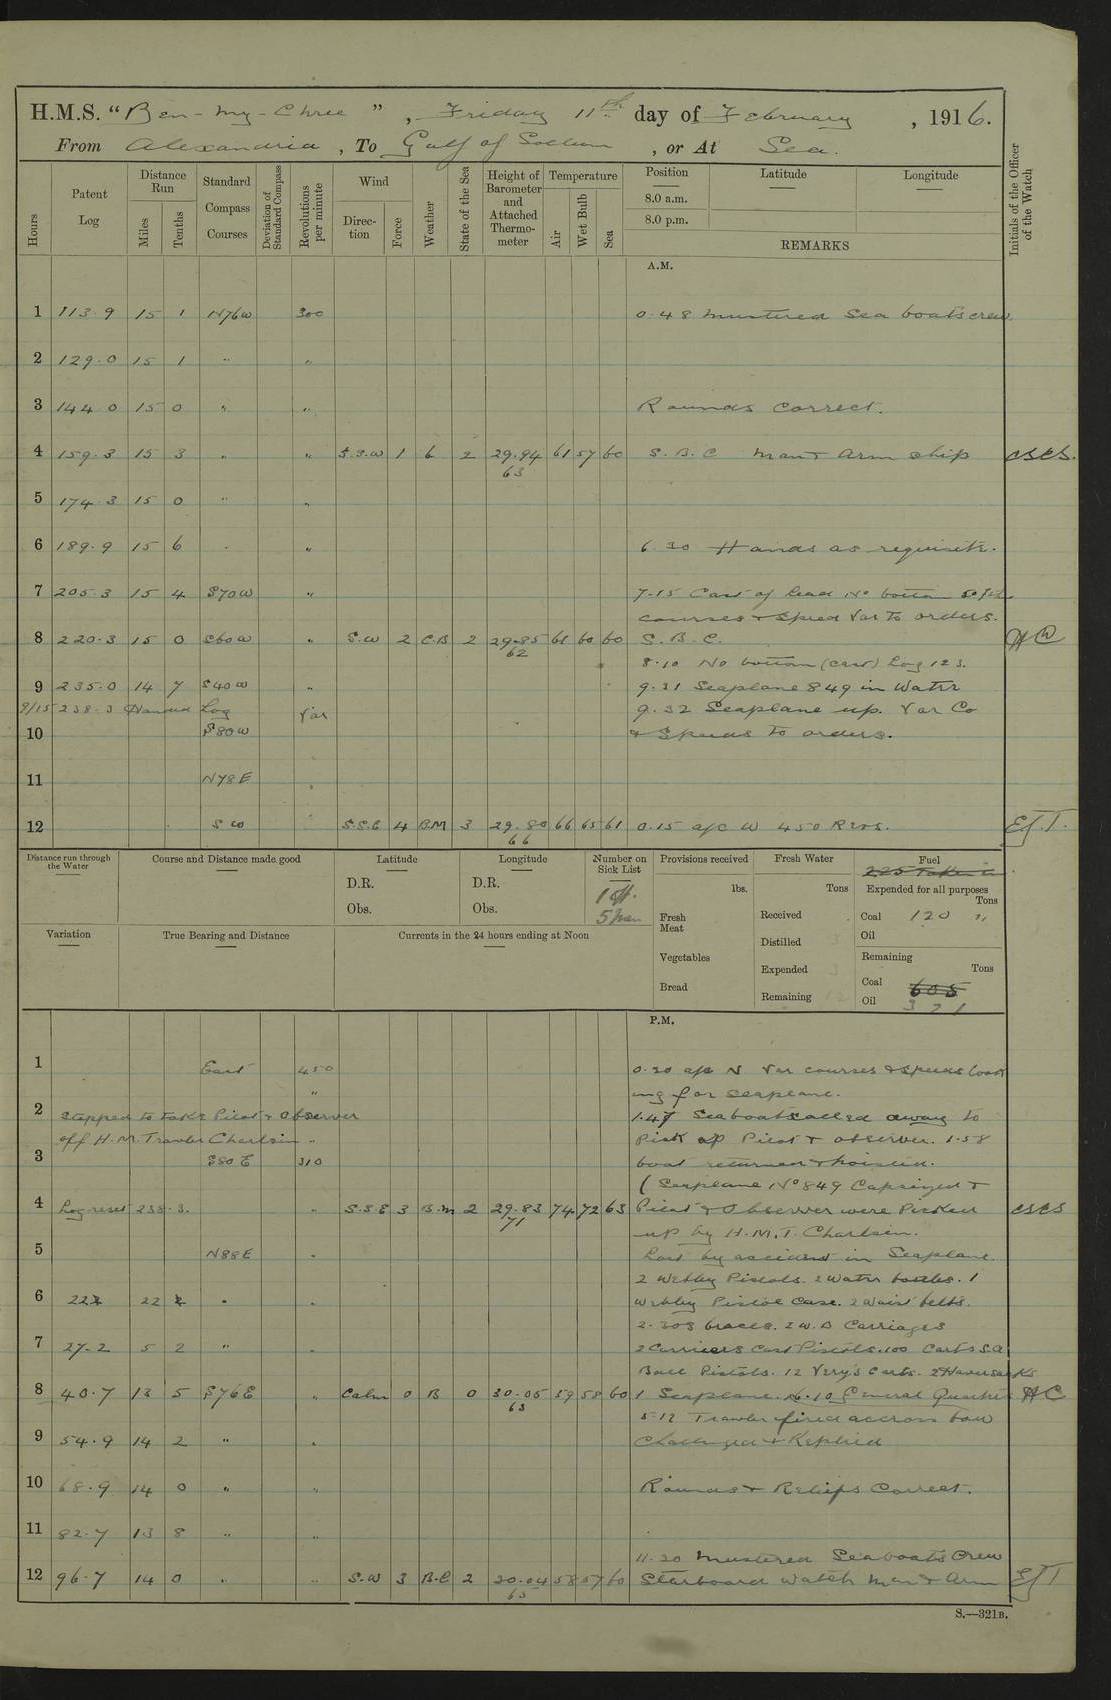 H.M.S. "Ben-my-Chree", Friday 11th day of February, 1916.
From Alexandria, To Gulf of Sollum, or At Sea.
Hours
Patent Log
Distance Run
Miles
Tenths
Standard Compass Courses
Deviation of Standard Compass
Revolutions per minute
Wind
Direction
Force
Weather
State of the Sea
Height of Barometer and Attached Thermometer
Temperature
Air
Wet Bulb
Sea
Position
8.0 a.m.
8.0 p.m.
Latitude
Longitude
REMARKS
Initials of the Officer of the Watch
A.M.
1 113.9 15 1 N76W 300 0.48 Mustered Sea boats crew.
2 129.0 15 1 " "
3 144.0 15 0 " " Rounds correct.
4 159.3 15 3 " " S.S.W 1 b 2 29.94 61 57 60 S.B.C man & arm ship
63
5 174.3 15 0 " "
6 189.9 15 6 " " 6.30 Hands as requisite.
7 205.3 15 4 S70W " 7.15 Cast of lead No bottom
courses & speed Var to orders.
8 220.3 15 0 S60W " S.W 2 C.B 2 29.85 61 60 60 S.B.C.
62
8.10 No bottom Log 123.
9 235.0 14 7 S40W " 9.31 Seaplane 849 in Water
9/15 238.3 Handed Log Var 9.32 Seaplane up. Var Co
10 S80W & Speeds to orders.
11 N78E "
12 SW S.S.E 4 B.M 3 29.80 66 65 61 0.15 a/c W 450 Revs. E.J.T.
66
Distance run through the Water
Course and Distance made good
Latitude
D.R.
Obs.
Longitude
D.R.
Obs.
Number on Sick List
1 Off.
5 Men
Provisions received
lbs.
Fresh Meat
Vegetables
Bread
Fresh Water
Tons
Received
Distilled
Expended
Remaining
Fuel
225 Taken in
Expended for all purposes
Tons
Coal 120 "
Oil
Remaining
Tons
Coal 605
Oil 321
Variation
True Bearing and Distance
Currents in the 24 hours ending at Noon
P.M.
1 East 450 0.20 a/c N Var courses & speeds look
" ing for seaplane.
2 Stopped to take Pilot & Observer 1.47 Seaboat called away to
off H.M. Trawler Charlsin " Pick up Pilot & observer. 1.58
3 S80E 310 boat returned & hoisted.
(Seaplane No 849 Capsized &
4 Log reset 238.3. " S.S.E 3 B.M 2 29.83 74 72 63 Pilot & Observer were Picked
71 up by H.M.T. Charlsin.
5 N88E " Lost by accident in Seaplane.
2 Webley Pistols. 2 Water bottles. 1
6 222 22 2 " " Webley Pistol Case. 2 Waist belts.
2.303 braces. 2 W.B Carriages
7 27.2 5 2 " " 2 Carriers Cart Pistols. 100 Carts S.A
Ball Pistols. 12 Very's Carts. 2 Haversacks
8 40.7 13 5 S76E " Calm 0 B 0 30.05 59 58 60 1 Seaplane. 4.10 General Quarters HC
63
5.12 Trawler fired accross bow
9 54.9 14 2 " " Challenged & Replied
10 68.9 14 0 " " Rounds & Reliefs Correct.
11 82.7 13 8 " "
11.20 Mustered Seaboats Crew
12 96.7 14 0 " " S.W 3 B.C 2 30.04 58 57 60 Starboard Watch Man & Arm E.J.T
63
S.—321B.